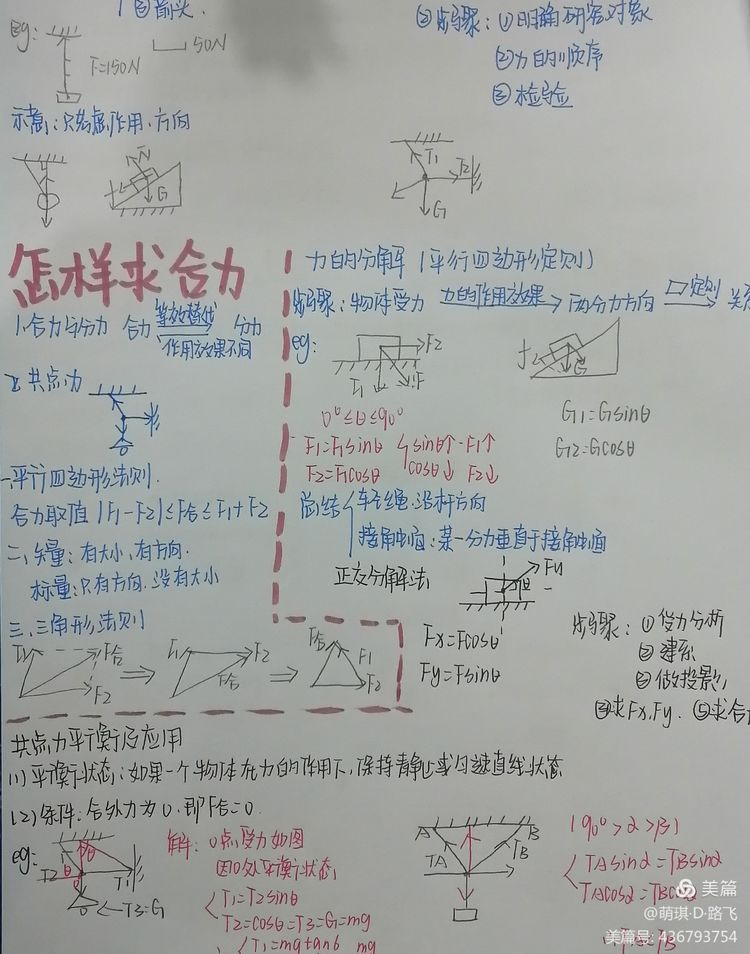 ③箭头.
eg:
F=150N
50N
示意:只需画作用.方向
N
f
G
②步骤:①明确研究对象
②力的顺序
③检验
T1
T2
G
怎样求合力
1.合力与分力 合力 等效替代 分力
作用效果不同
2.共点力
一.平行四边形法则.
合力取值|F1-F2|≤F合≤F1+F2
二、矢量:有大小,有方向.
标量:只有方向.没有大小
三.三角形法则
F1 F合 F2
F1 F2 F合
F合 F1 F2
力的分解(平行四边形定则)
步骤:物体受力 力的作用效果 两分力方向 口定则
eg:
F2
F1
F
G
0°≤θ≤90°
F1=F1sinθ
F2=F1cosθ
sinθ↑ F1↑
cosθ↓ F2↓
G1=Gsinθ
G2=Gcosθ
总结
轻绳.沿杆方向
接触面:某一分力垂直于接触面
正交分解法
Fy
θ
Fx=Fcosθ
Fy=Fsinθ
步骤:①受力分析
②建系
③做投影
③求Fx,Fy.⑤求合
共点力平衡及应用
(1)平衡状态:如果一个物体在力的作用下,保持静止或匀速直线状态
(2)条件:合外力为0.即F合=0.
eg:
T2
θ
T1
T3=G
解:O点受力如图
因O处平衡状态
T1=T2sinθ
T2=cosθ=T3=G=mg
T1=mgtanθ
mg
A
B
TA
TB
(90°>α>β)
TAsinα=TBsinα
TAcosα=TBcosα
美篇
@萌琪·D·路飞
美篇号:436793754